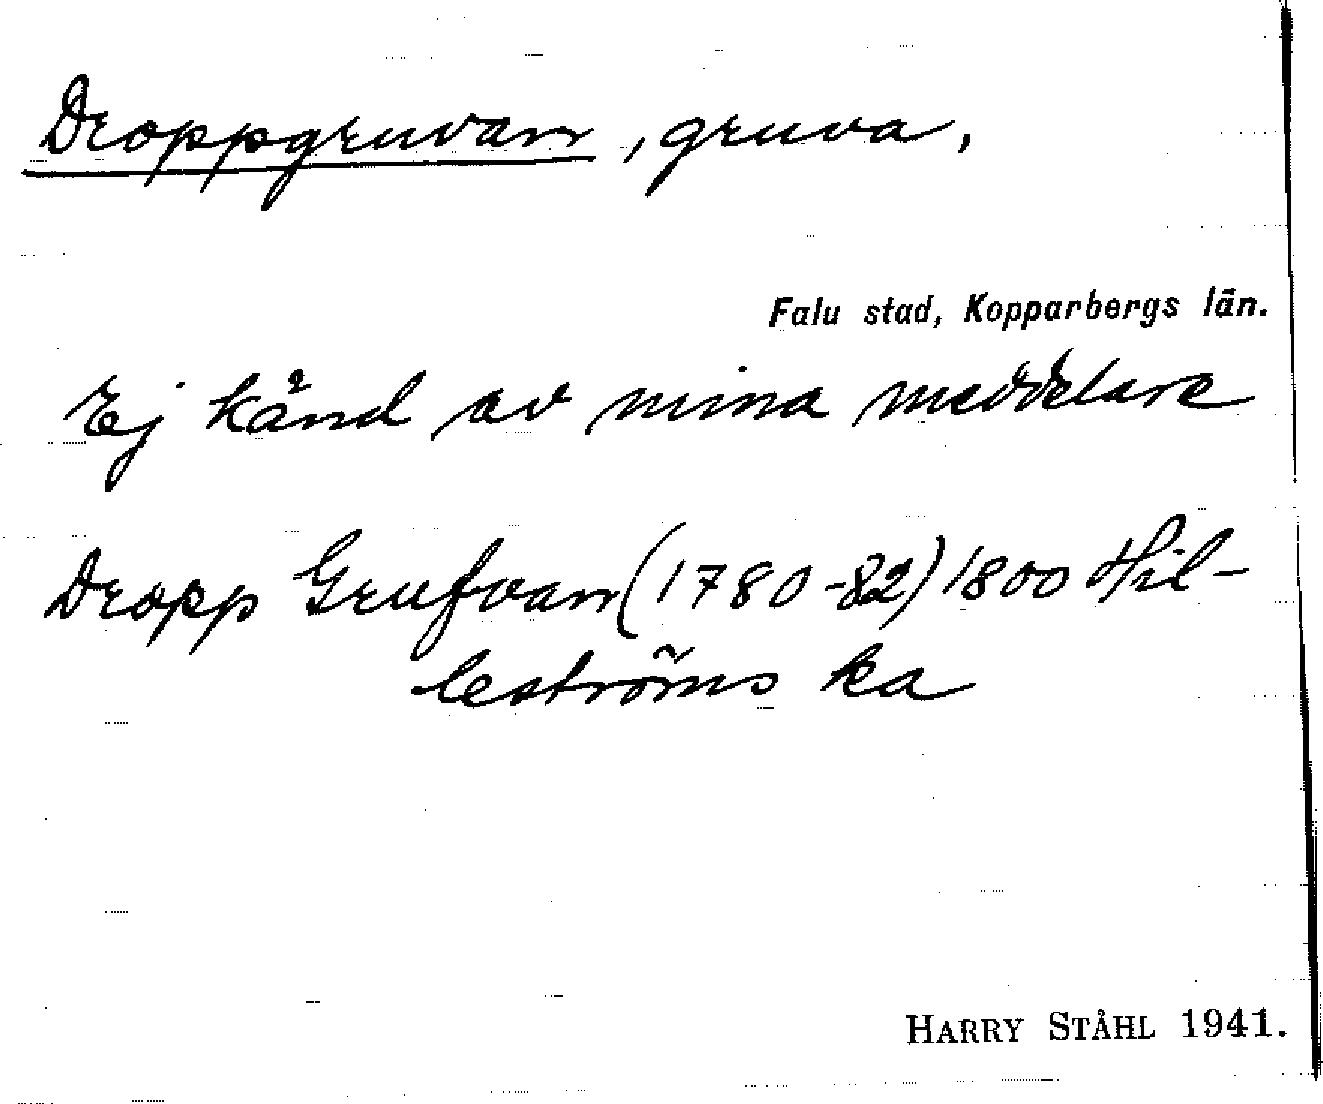 Droppgruvan, gruva,
Falu stad, Kopparbergs län.
Ej känd av mina meddelare
Dropp Grufvan (1780-82) 1800 Hil-
leströms ka
HARRY STÅHL 1941.